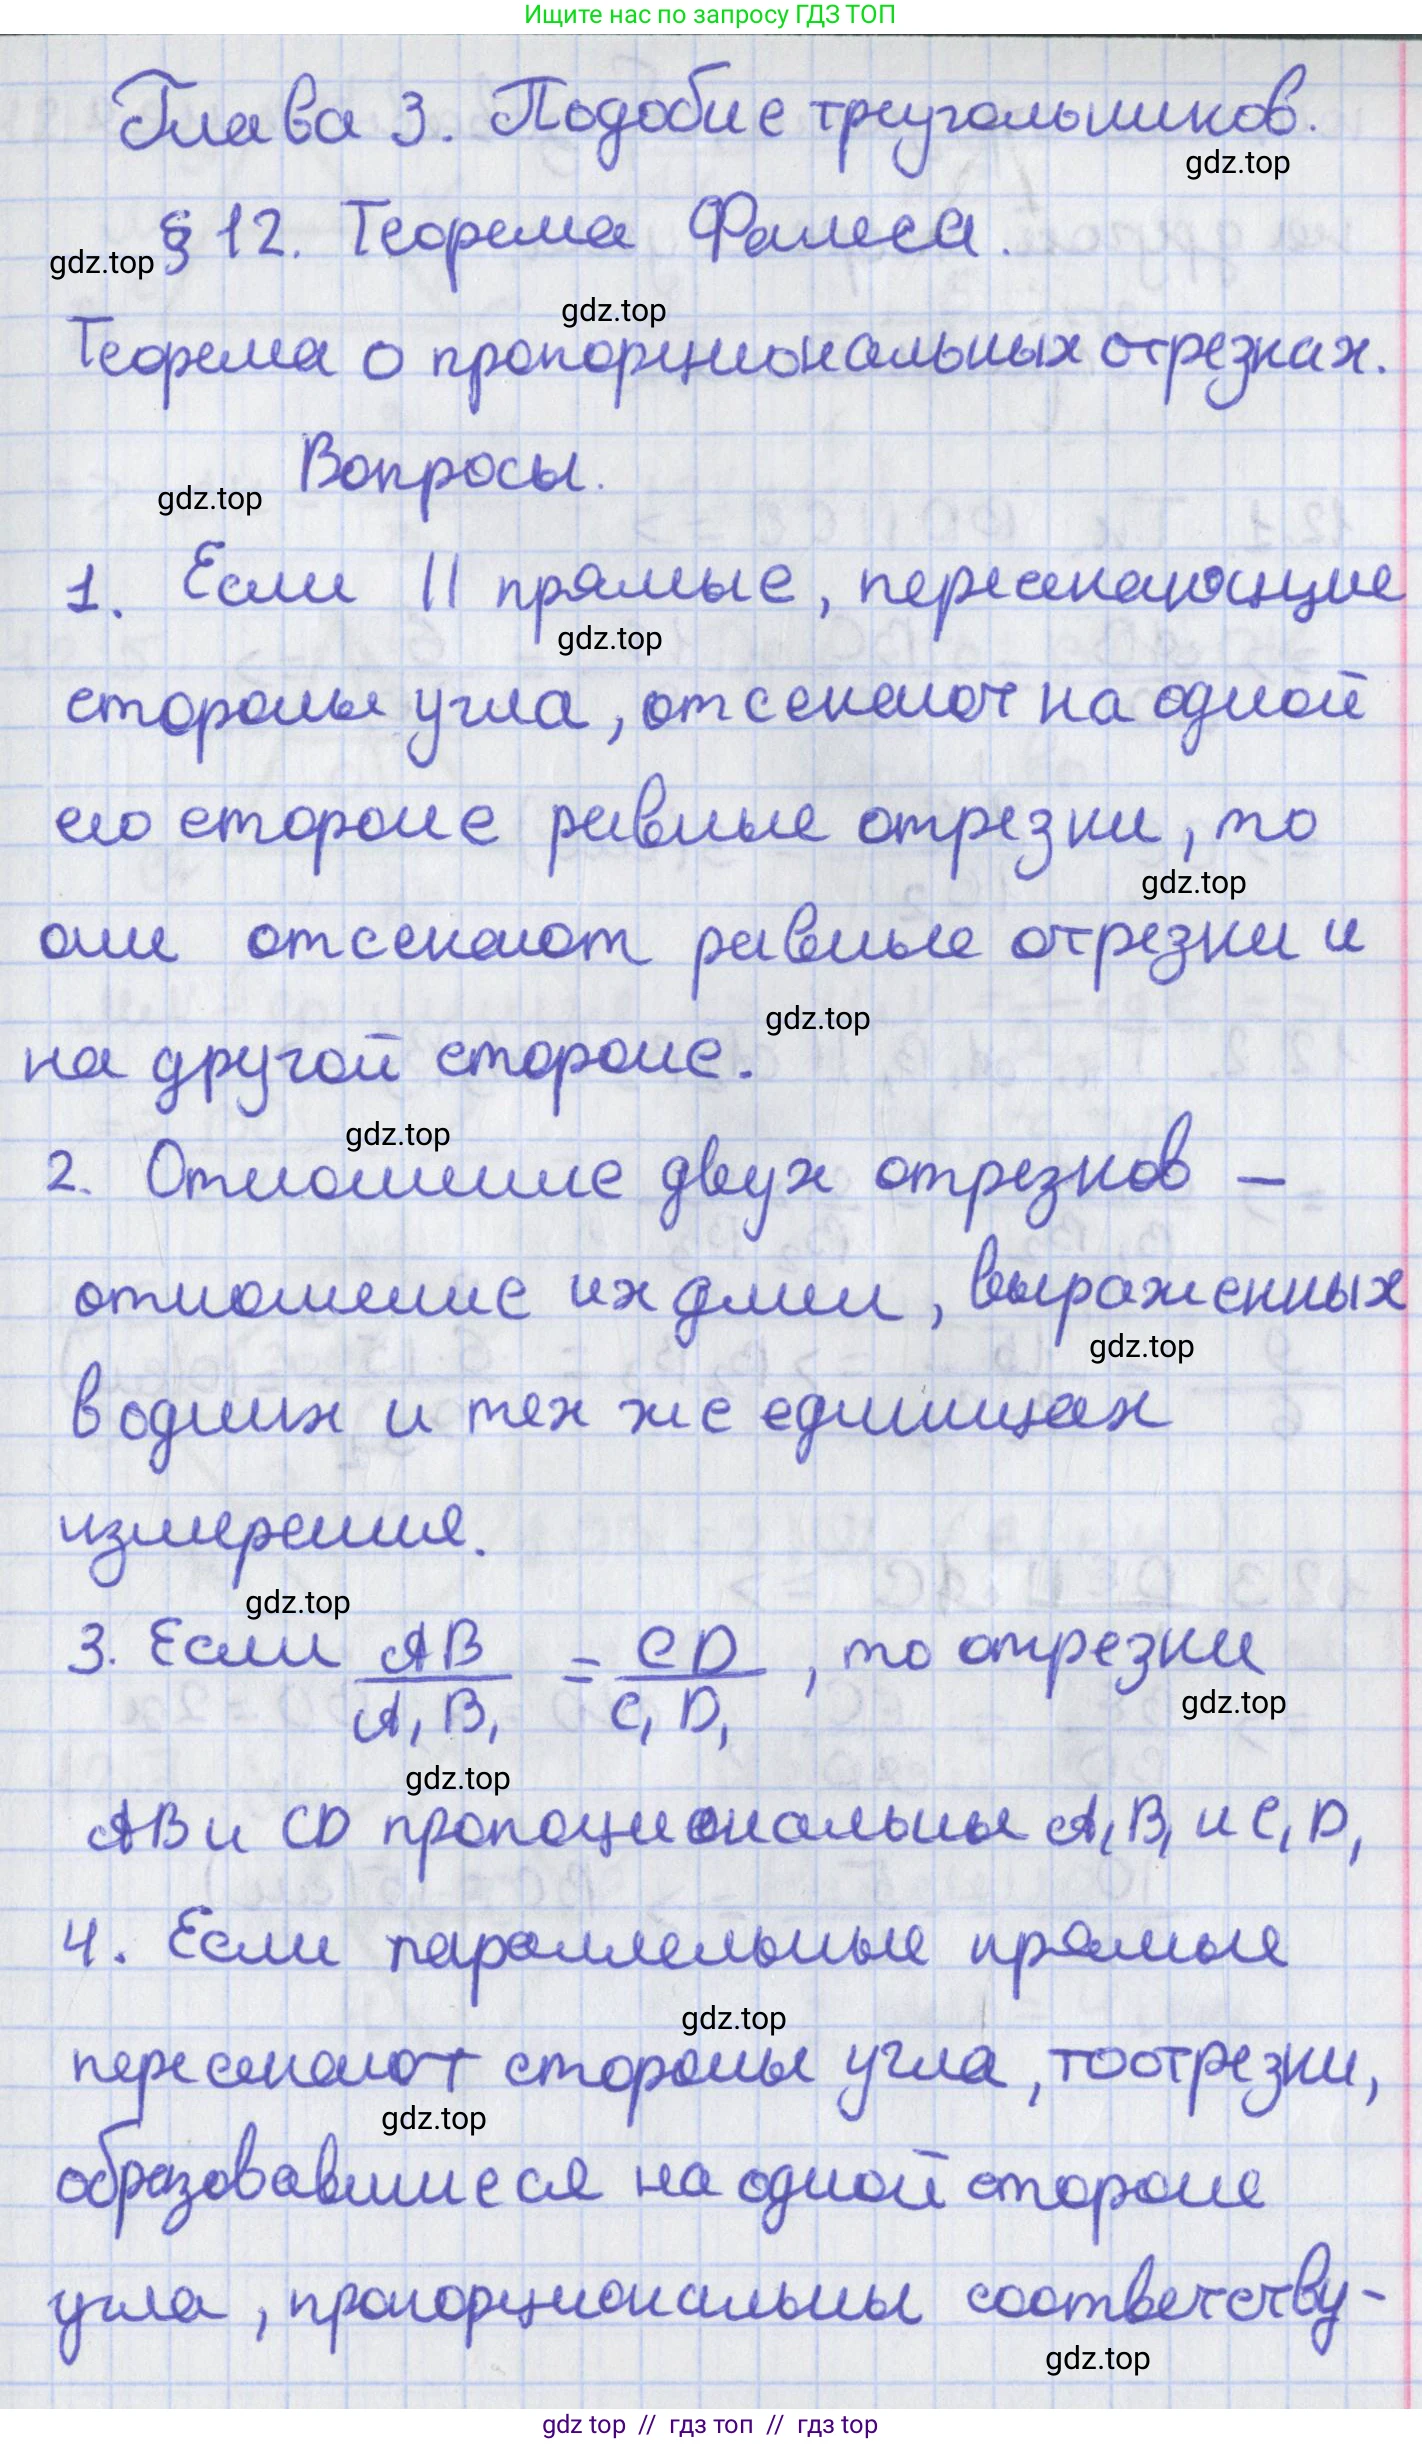 Ищите нас по запросу ГДЗ ТОП
Глава 3. Подобие треугольников.
gdz.top
§ 12. Теорема Фалеса.
gdz.top
gdz.top
Теорема о пропорциональных отрезках.
Вопросы.
gdz.top
1. Если || прямые, пересекающие
gdz.top
стороны угла, отсекают на одной
его стороне равные отрезки, то
gdz.top
они отсекают равные отрезки и
gdz.top
на другой стороне.
gdz.top
2. Отношение двух отрезков –
отношение их длин, выраженных
gdz.top
в одних и тех же единицах
измерения.
gdz.top
3. Если AB/A₁B₁ = CD/C₁D₁, то отрезки
gdz.top
gdz.top
AB и CD пропоциональны A₁B₁ и C₁D₁
4. Если параллельные прямые
gdz.top
пересекают стороны угла, то отрезки,
gdz.top
образовавшиеся на одной стороне
угла, пропорциональны соответству-
gdz.top
gdz top // гдз топ // гдз top